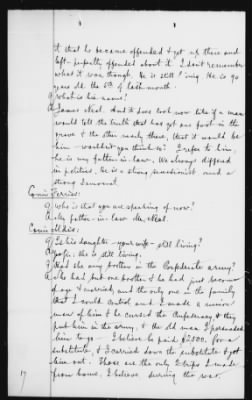 it that he became offended & got up there and
left—perfectly offended about it. I dont remember
what it was though. He is still living. He is 90
years old the 6th of last month.
Q) What is his name?
A) James Neal. And it does look now like if a man
would tell the truth that has got one foot in the
grave & the other nearly there, that it would be
him—wouldn't you think so? I refer to him,
he is my father-in-law. We always differed
in politics. He is a strong secessionist and a
strong Democrat.
Com'r Ferriss:
Q) Who is that you are speaking of now?
A) My father-in-law Mr. Neal.
Com'r Aldis:
Q) Is his daughter—your wife—still living?
A) Yes sir. She is still living.
Q) Had she any brothers in the Confederate army?
A) She had but one brother & he had just become
of age & married, and the only one in the family
that I could control and I made a union
man of him & he cursed the Confederacy & they
put him in the army, & the old man I persuaded
him to go— I believe he paid $2500. for a
substitute, & I carried down the substitute & got
him out. Those are the only 2 trips I made
from home, I believe, during the war.